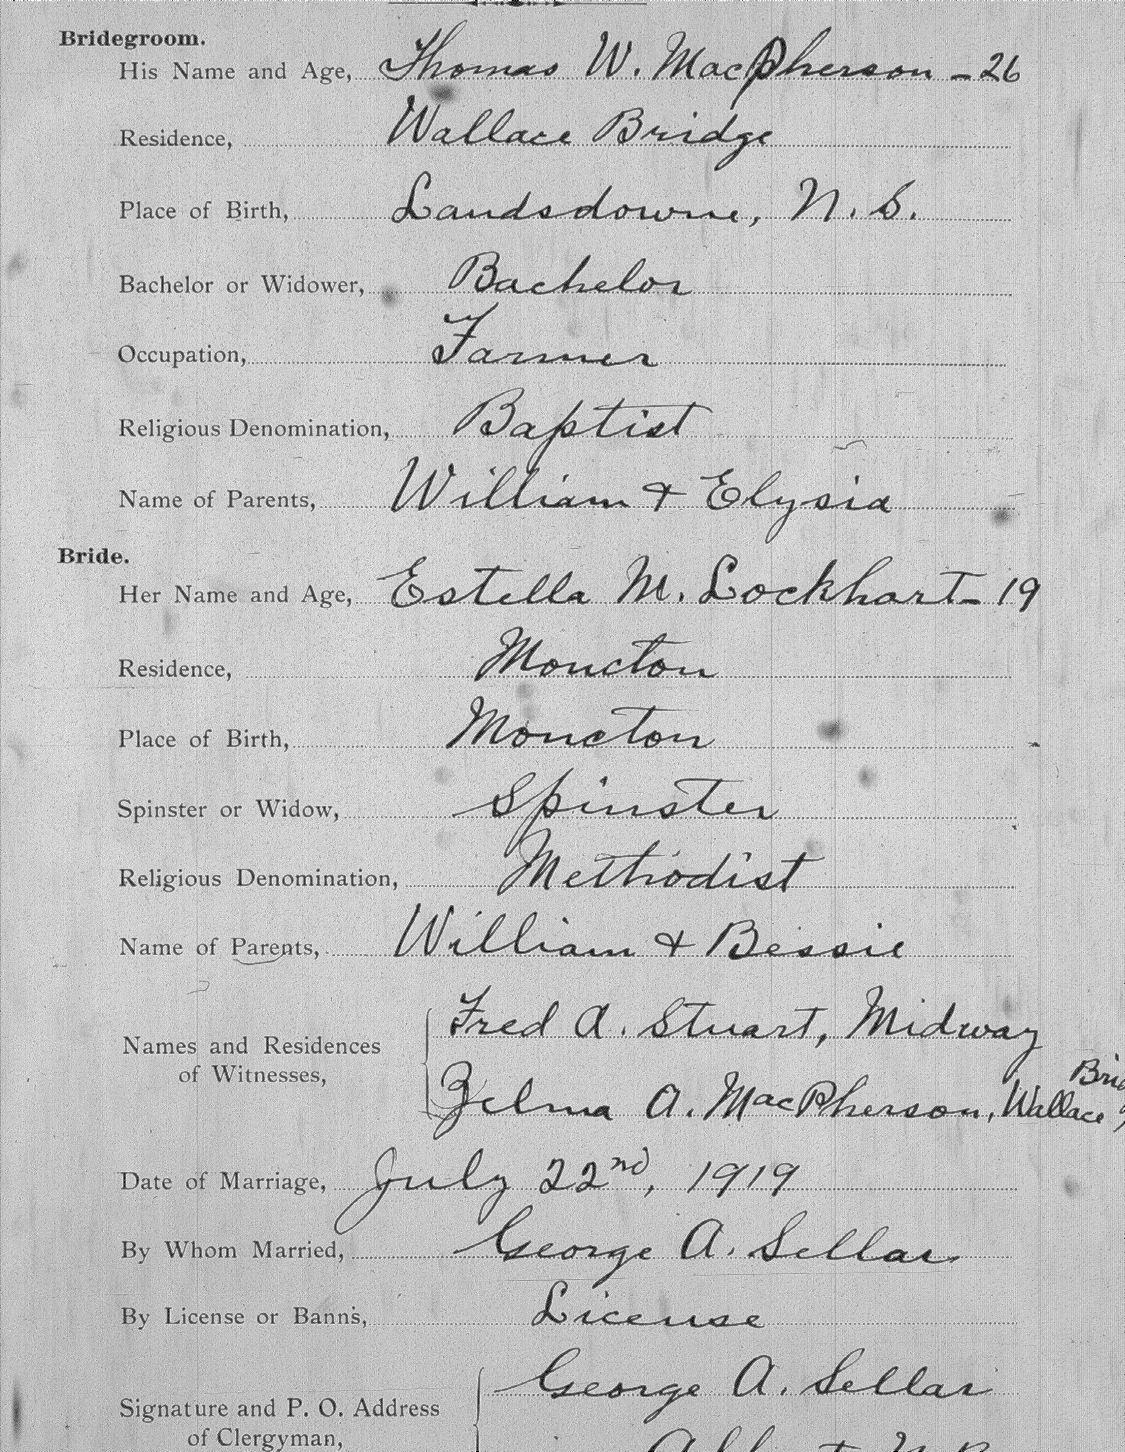 Bridegroom.
His Name and Age, Thomas W. MacPherson - 26
Residence, Wallace Bridge
Place of Birth, Landsdowne, N.S.
Bachelor or Widower, Bachelor
Occupation, Farmer
Religious Denomination, Baptist
Name of Parents, William & Elysia
Bride.
Her Name and Age, Estella M. Lockhart - 19
Residence, Moncton
Place of Birth, Moncton
Spinster or Widow, Spinster
Religious Denomination, Methodist
Name of Parents, William & Bessie
Names and Residences of Witnesses,
Fred A. Stuart, Midway
Zelma A. MacPherson, Wallace
Date of Marriage, July 22nd, 1919
By Whom Married, George A. Sellar
By License or Banns, License
Signature and P. O. Address of Clergyman,
George A. Sellar